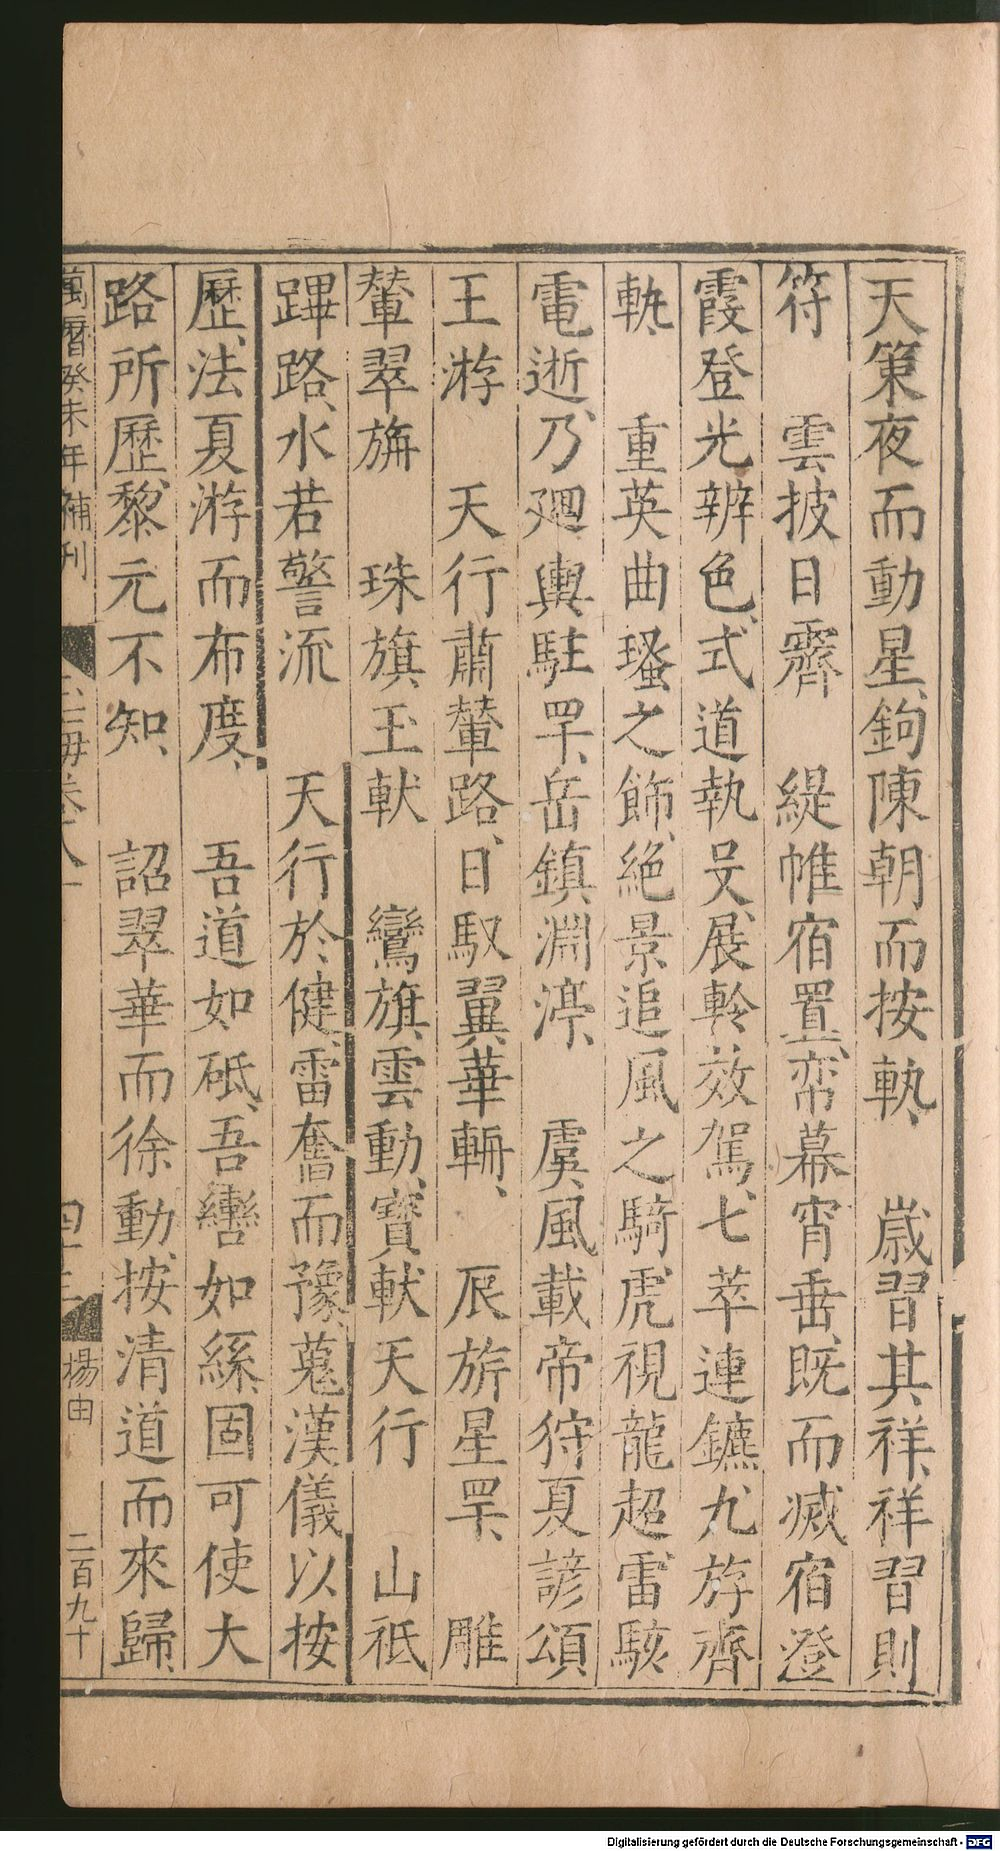 天策夜而動星、鉤陳朝而按軌、　歲習其祥、祥習則
符　雲披日霽　緹帷宿置、帟幕宵垂、既而滅宿澄
霞登光辨色、式道執殳、展軨效駕、七萃連鑣、九斿齊
軌、　重英曲瑵之飾、絕景追風之騎、虎視龍超、雷駭
電逝、乃廻輿駐罕、岳鎮淵渟、　虞風載帝狩夏諺頌
王游　天行肅輦路、日馭翼華輧、　辰旂星罕、　雕
輦翠旃　珠旗玉軑　鸞旗雲動、寶軑天行　山祗
蹕路、水若警流　天行於健、雷奮而豫、蒐漢儀以按
歷、法夏游而布度、　吾道如砥、吾轡如絲、固可使大
路所歷、黎元不知、　詔翠華而徐動、按清道而來歸、
萬曆癸未年補刊　海卷　楊由　二百九十
Digitalisierung gefördert durch die Deutsche Forschungsgemeinschaft - DFG